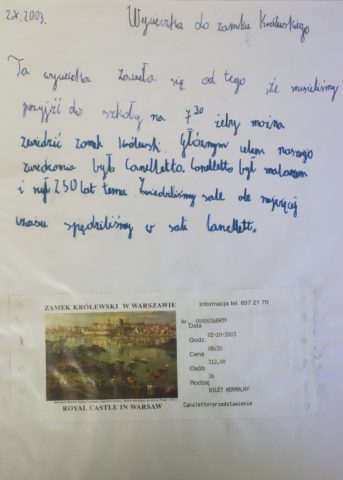 2.X.2003. Wycieczka do zamku Królewskiego
Ta wycieczka zaczęła się od tego, że musieliśmy
przyjść do szkoły na 7³⁰ żeby można
zwiedzić zamek Królewski. Głównym celem naszego
zwiedzania było Canelletto. Canelletto był malarzem
i żył 250 lat temu. Zwiedziliśmy sale ale najwięcej
czasu spędziliśmy w sali Canellett.
ZAMEK KRÓLEWSKI W WARSZAWIE
ROYAL CASTLE IN WARSAW
Informacja tel. 657 21 70
Nr. 00000368459
Data
02-10-2003
Godz.
08:30
Cena
312,00
Osób
26
Rodzaj
BILET NORMALNY
Canaletto+przedstawienie